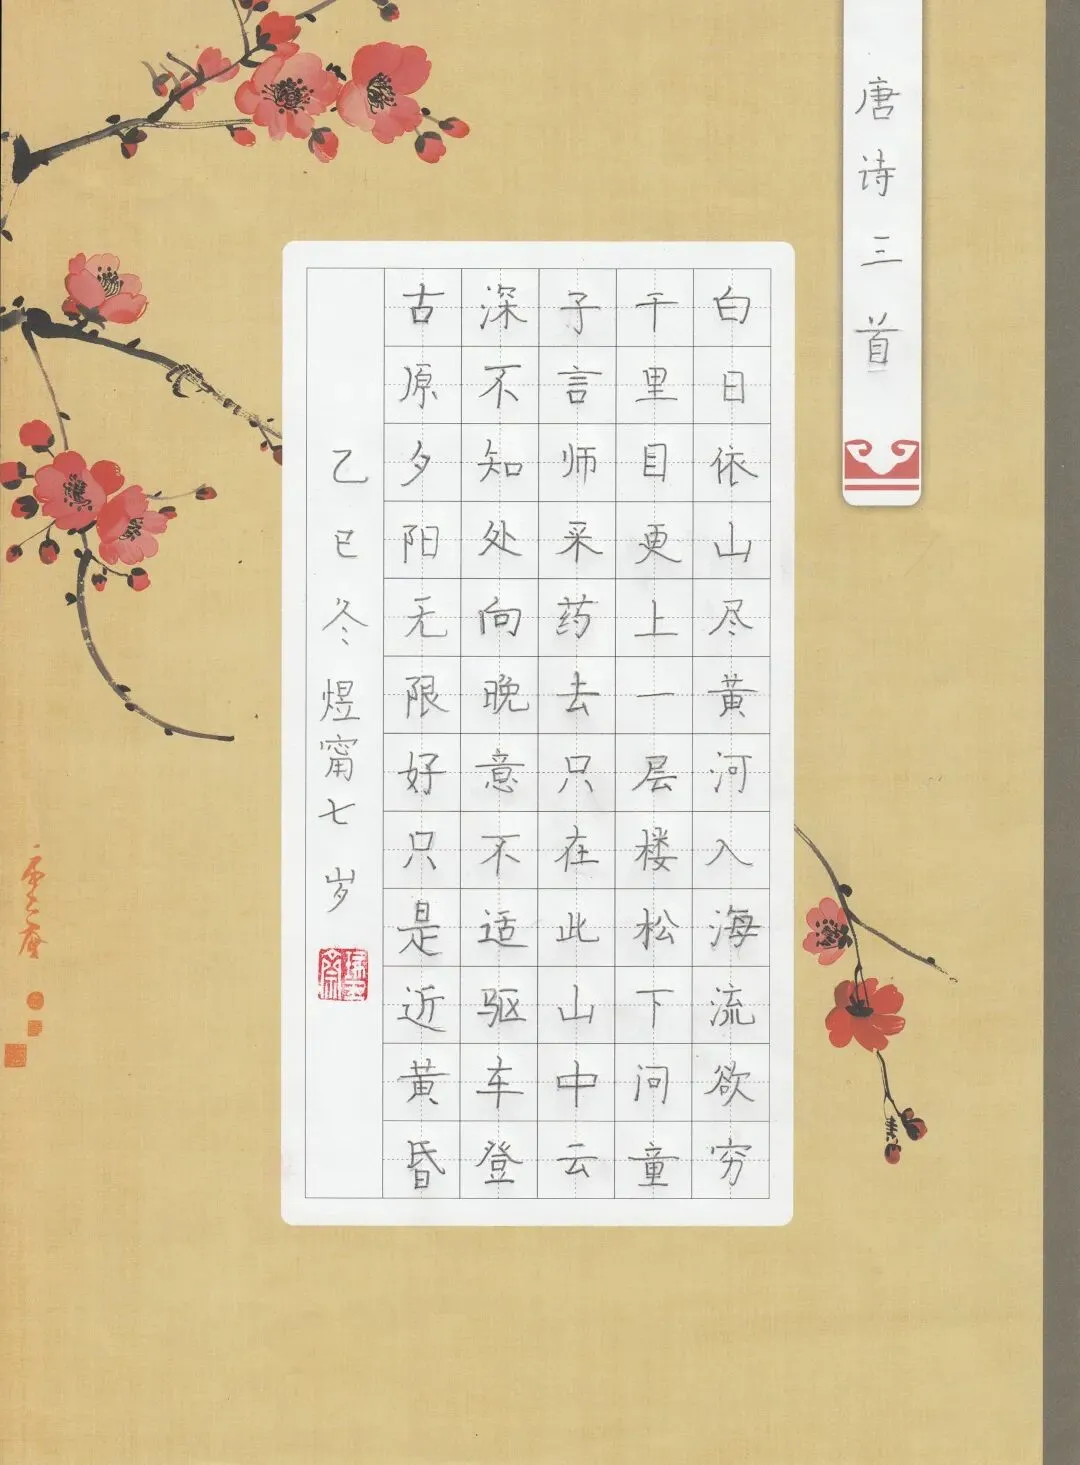 唐诗三首
白日依山尽黄河入海流欲穷
千里目更上一层楼松下问童
子言师采药去只在此山中云
深不知处向晚意不适驱车登
古原夕阳无限好只是近黄昏
乙巳冬煜甯七岁